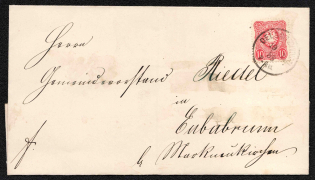 Herrn
Gemeindevorstand Riedel
in
Eababrunn
b/ Markneukirchen.
fr.
10